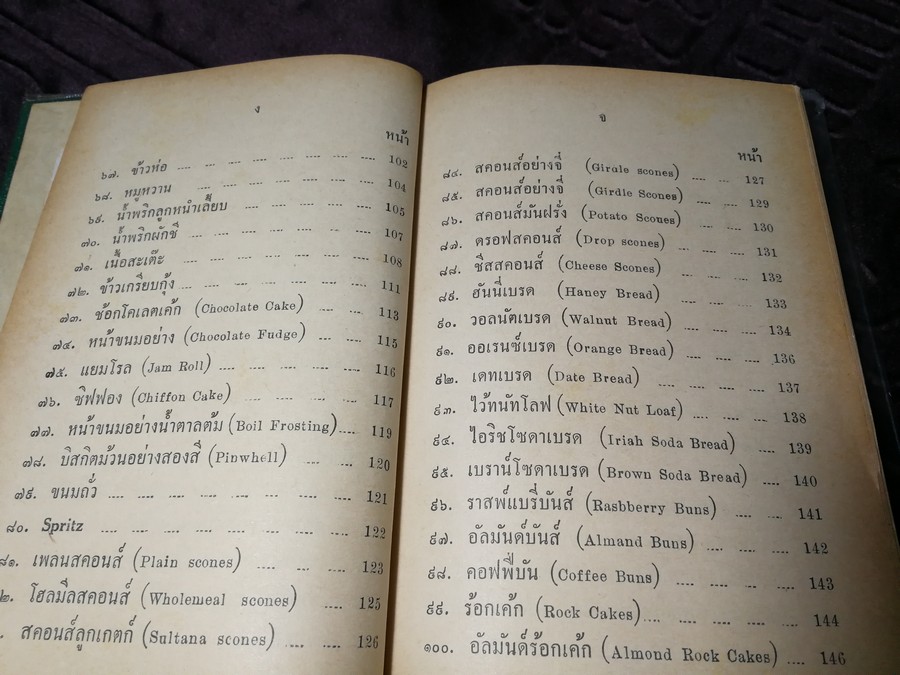 ง
หน้า
๖๗. ข้าวห่อ .... .... .... .... .... .... 102
๖๘. หมูหวาน .... .... .... .... .... 104
๖๙. น้ำพริกลูกหนำเลี้ยบ .... .... .... .... 105
๗๐. น้ำพริกผักชี .... .... .... .... .... 107
๗๑. เนื้อสะเต๊ะ .... .... .... .... .... 108
๗๒. ข้าวเกรียบกุ้ง .... .... .... .... .... 111
๗๓. ช้อกโคเลตเค้ก (Chocolate Cake) .... .... 113
๗๔. หน้าขนมอย่าง (Chocolate Fudge) .... .... 115
๗๕. แยมโรล (Jam Roll) .... .... .... .... 116
๗๖. ชิฟฟอง (Chiffon Cake) .... .... .... 117
๗๗. หน้าขนมอย่างน้ำตาลต้ม (Boil Frosting).... 119
๗๘. บิสกิตม้วนอย่างสองสี (Pinwhell) .... .... 120
๗๙. ขนมถั่ว .... .... .... .... .... .... .... 121
๘๐. Spritz .... .... .... .... .... .... 122
๘๑. เพลนสคอนส์ (Plain scones) .... .... .... 123
๒. โฮลมีลสคอนส์ (Wholemeal scones) .... 125
. สคอนส์ลูกเกตก์ (Sultana scones) .... .... 126
จ
หน้า
๘๔. สคอนส์อย่างจี่ (Girdle scones) .... .... 127
๘๕. สคอนส์อย่างจี่ (Girdie Scones) .... .... 129
๘๖. สคอนส์มันฝรั่ง (Potato Scones) .... .... 130
๘๗. ดรอฟสคอนส์ (Drop scones) .... .... .... 131
๘๘. ชีสสคอนส์ (Cheese Scones) .... .... .... 132
๘๙. ฮันนี่เบรด (Haney Bread) .... .... .... 133
๙๐. วอลนัตเบรด (Walnut Bread) .... .... .... 134
๙๑. ออเรนช์เบรด (Orange Bread) .... .... .... 136
๙๒. เดทเบรด (Date Bread) .... .... .... .... 137
๙๓. ไว้ทนัทโลฟ (White Nut Loaf) .... .... .... 138
๙๔. ไอริชโซดาเบรด (Iriah Soda Bread) .... 139
๙๕. เบราน์โซดาเบรด (Brown Soda Bread) .... 140
๙๖. ราสพ์แบรี่บันส์ (Rasbberry Buns) .... .... 141
๙๗. อัลมันด์บันส์ (Almand Buns) .... .... .... 142
๙๘. คอฟฟี่บัน (Coffee Buns) .... .... .... .... 143
๙๙. ร้อกเค้ก (Rock Cakes).... .... .... .... 144
๑๐๐. อัลมันด์ร้อกเค้ก (Almond Rock Cakes) .... 146